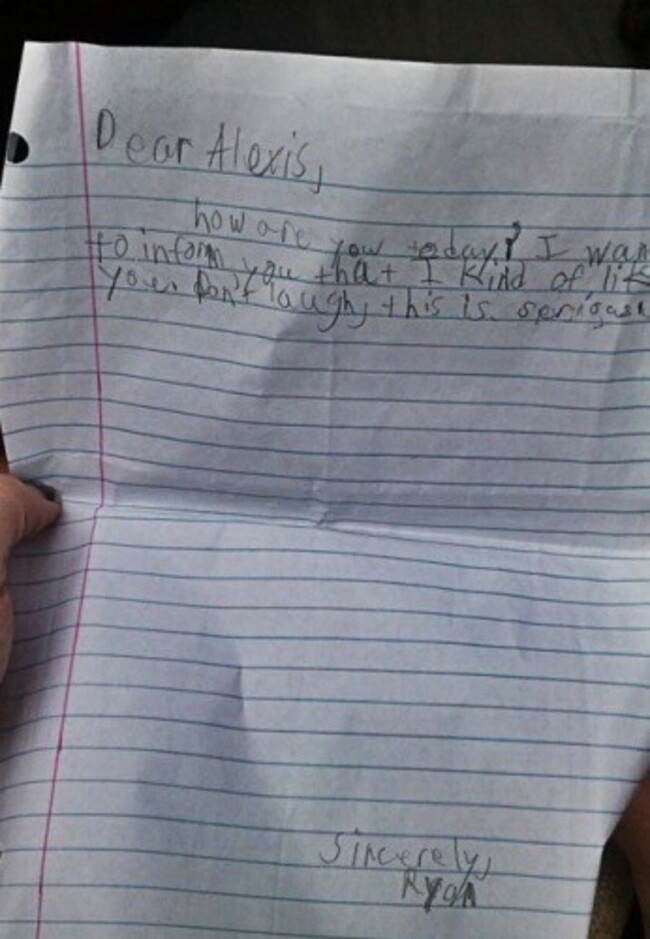 Dear Alexis,
how are you today? I wan
to inform you that I kind of lik
you. Don't laugh, this is serigasu
Sincerely,
Ryan